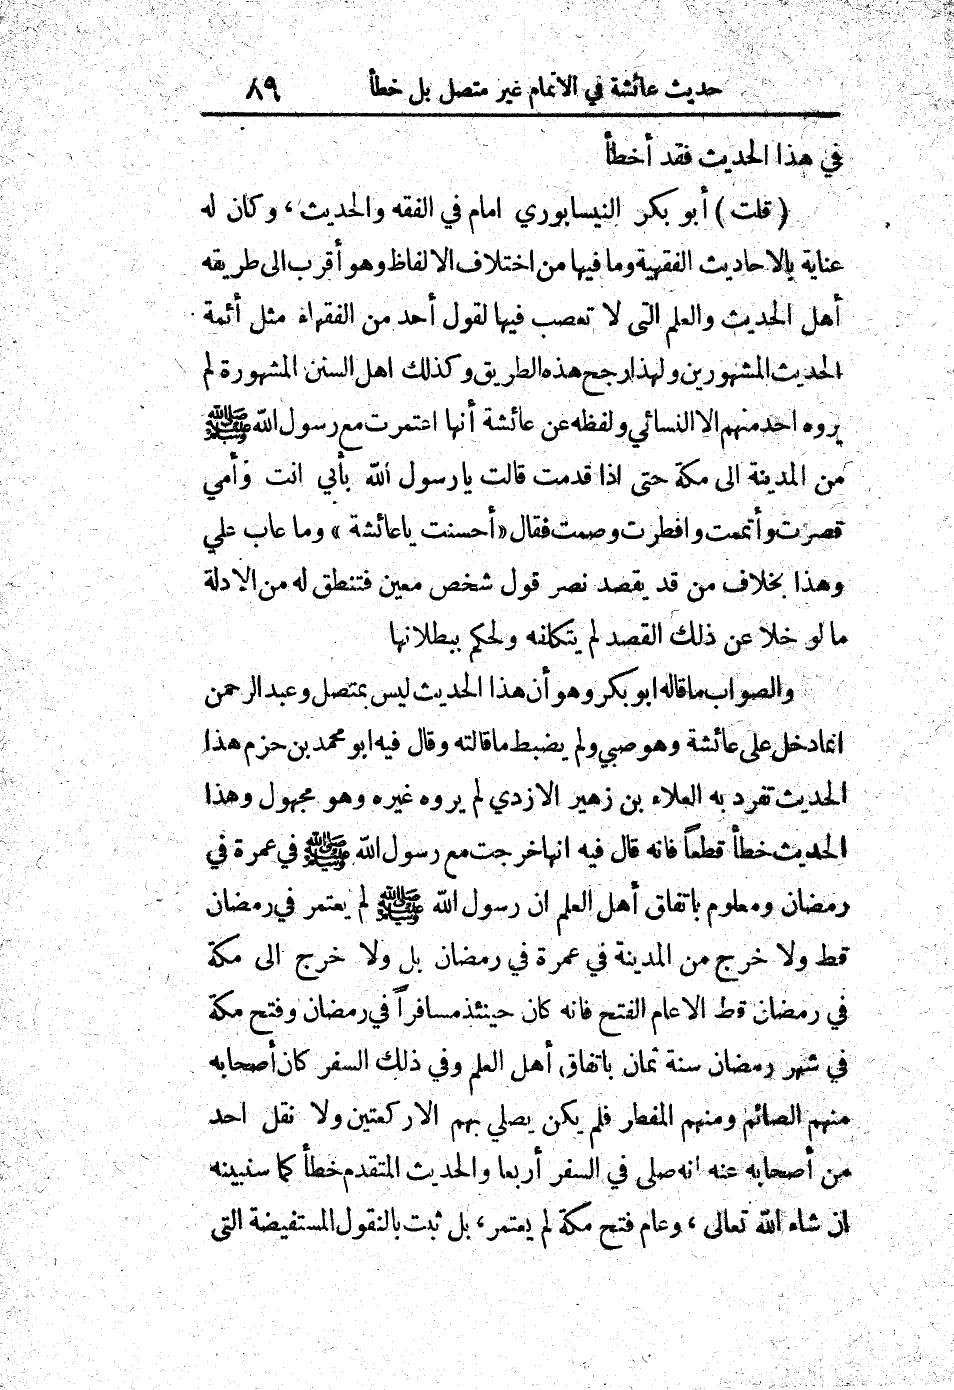 حديث عائشة في الاتمام غير متصل بل خطأ ٨٩
في هذا الحديث فقد أخطأ
( قلت ) أبو بكر النيسابوري امام في الفقه والحديث ، وكان له
عناية بالاحاديث الفقهية وما فيها من اختلاف الالفاظ وهو أقرب الى طريقه
أهل الحديث والعلم التى لا تعصب فيها لقول أحد من الفقهاء مثل أئمة
الحديث المشهورين ولهذا رجح هذه الطريق وكذلك اهل السنن المشهورة لم
يروه احد منهم الا النسائي ولفظه عن عائشة أنها اعتمرت مع رسول الله ﷺ
من المدينة الى مكة حتى اذا قدمت قالت يا رسول الله بأبي انت وأمي
قصرت وأتممت وافطرت وصمت فقال « أحسنت ياعائشة » وما عاب علي
وهذا بخلاف من قد يقصد نصر قول شخص معين فتنطق له من الادلة
ما لو خلا عن ذلك القصد لم يتكلفه ولحكم ببطلانها
والصواب ما قاله ابو بكر وهو أن هذا الحديث ليس بمتصل وعبد الرحمن
انما دخل على عائشة وهو صبي ولم يضبط ما قالته وقال فيه ابو محمد بن حزم هذا
الحديث تفرد به العلاء بن زهير الازدي لم يروه غيره وهو مجهول وهذا
الحديث خطأ قطعاً فانه قال فيه انها خرجت مع رسول الله ﷺ في عمرة في
رمضان ومعلوم باتفاق أهل العلم ان رسول الله ﷺ لم يعتمر في رمضان
قط ولا خرج من المدينة في عمرة في رمضان بل ولا خرج الى مكة
في رمضان قط الا عام الفتح فانه كان حينئذ مسافراً في رمضان وفتح مكة
في شهر رمضان سنة ثمان باتفاق أهل العلم وفي ذلك السفر كان أصحابه
منهم الصائم ومنهم المفطر فلم يكن يصلي بهم الا ركعتين ولا نقل احد
من أصحابه عنه انه صلى في السفر أربعا والحديث المتقدم خطأ كما سنبينه
ان شاء الله تعالى ، وعام فتح مكة لم يعتمر ، بل ثبت بالنقول المستفيضة التى